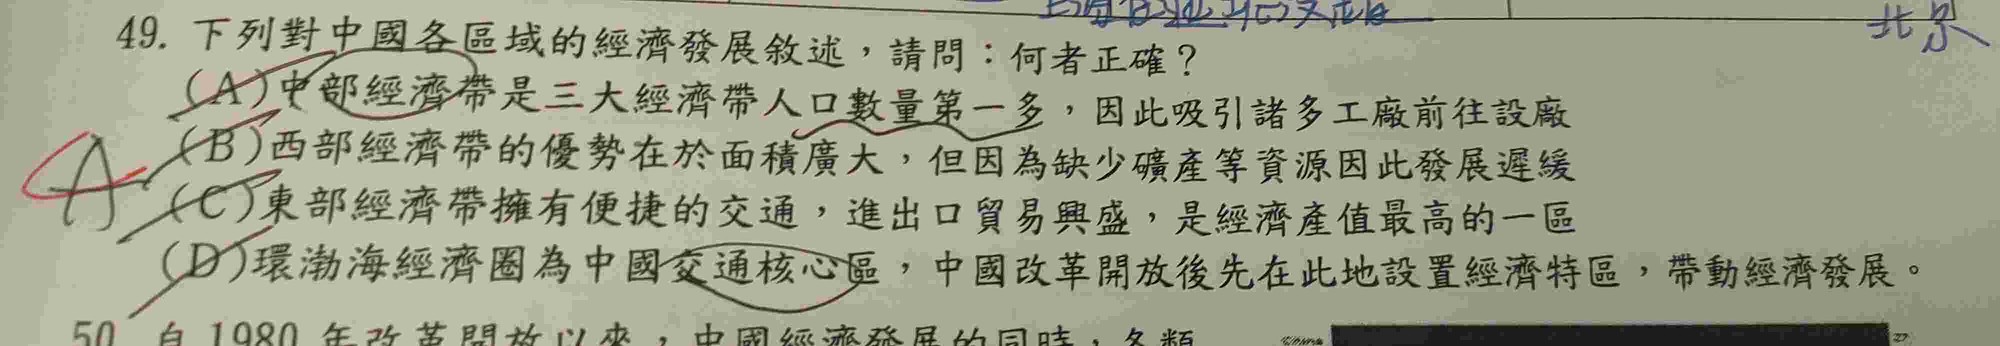 北京
49. 下列對中國各區域的經濟發展敘述，請問：何者正確？
(A)中部經濟帶是三大經濟帶人口數量第一多，因此吸引諸多工廠前往設廠
A
(B)西部經濟帶的優勢在於面積廣大，但因為缺少礦產等資源因此發展遲緩
(C)東部經濟帶擁有便捷的交通，進出口貿易興盛，是經濟產值最高的一區
(D)環渤海經濟圈為中國交通核心區，中國改革開放後先在此地設置經濟特區，帶動經濟發展。
50 自1980年改革開放以來，中國經濟發展的同時，各類